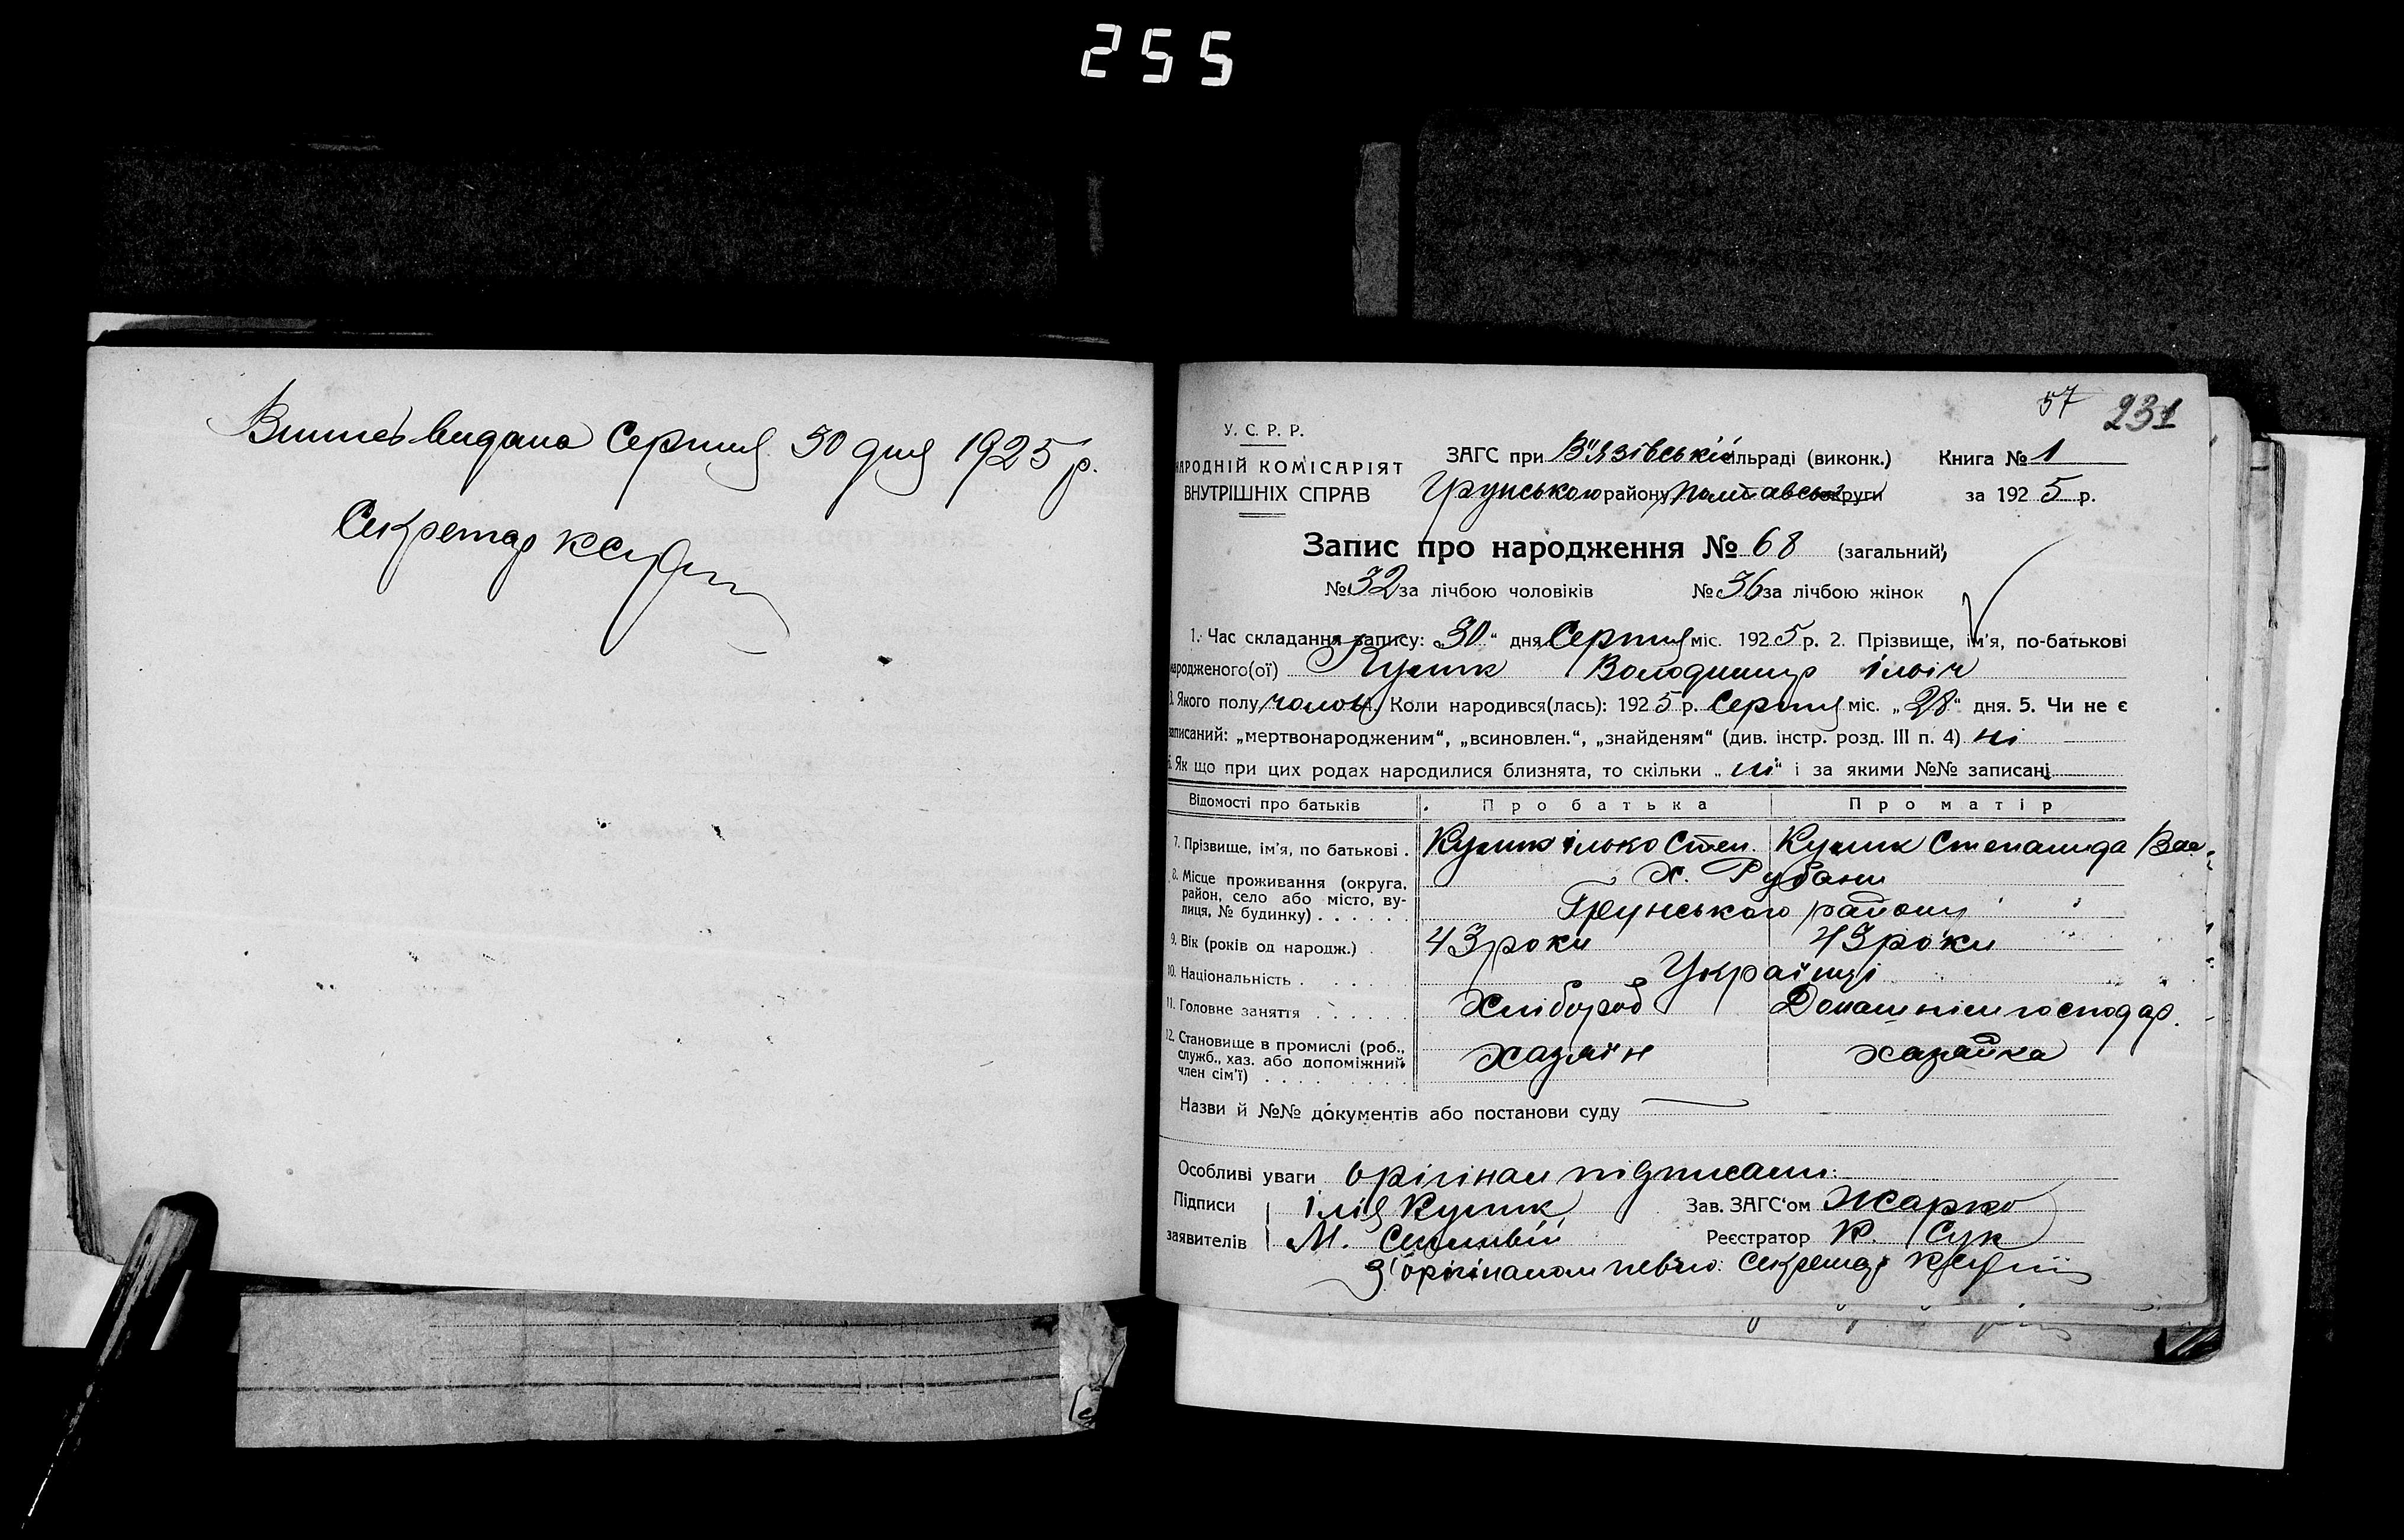 255
Випись видана Серпня 30 дня 1925 р.
Секретар
57 231
У. С. Р. Р.
НАРОДНІЙ КОМІСАРІЯТ
ВНУТРІШНІХ СПРАВ
ЗАГС при В'язівській сільраді (виконк.) Книга № 1
Грунського району Полтавськ округи за 1925 р.
Запис про народження № 68 (загальний)
№ 32 за лічбою чоловіків № 36 за лічбою жінок
1. Час складання запису: „30“ дня Серпня міс. 1925 р. 2. Прізвище, ім'я, по-батькові
народженого(ої) Кулик Володимир Ільіч
3. Якого полу чолов. 4. Коли народився(лась): 1925 р. Серпня міс. „28“ дня. 5. Чи не є
записаний: „мертвонародженим“, „всиновлен.“, „знайденям“ (див. інстр. розд. III п. 4) ні
6. Як що при цих родах народилися близнята, то скільки „ні“ і за якими №№ записані
Відомості про батьків Про батька Про матір
7. Прізвище, ім'я, по батькові . Кулик Ілько Степ. Кулик Степанида Вас
8. Місце проживання (округа, район, село або місто, вулиця, № будинку) . . . . . . х. Рубани
Грунського району
9. Вік (років од народж.) . 43 роки 43 роки
10. Національність . . . . Українці
11. Головне заняття . . . . . . Хлібороб Домашнім господар.
12. Становище в промислі (роб., служб., хаз. або допоміжний член сім'ї) . . . . хазяїн хазяйка
Назви й №№ документів або постанови суду
Особливі уваги орігінал підписали:
Підписи Ілія Кулик Зав. ЗАГС'ом Жарко
заявителів М. Реєстратор К. Сук
З орігіналом певно: Секретар